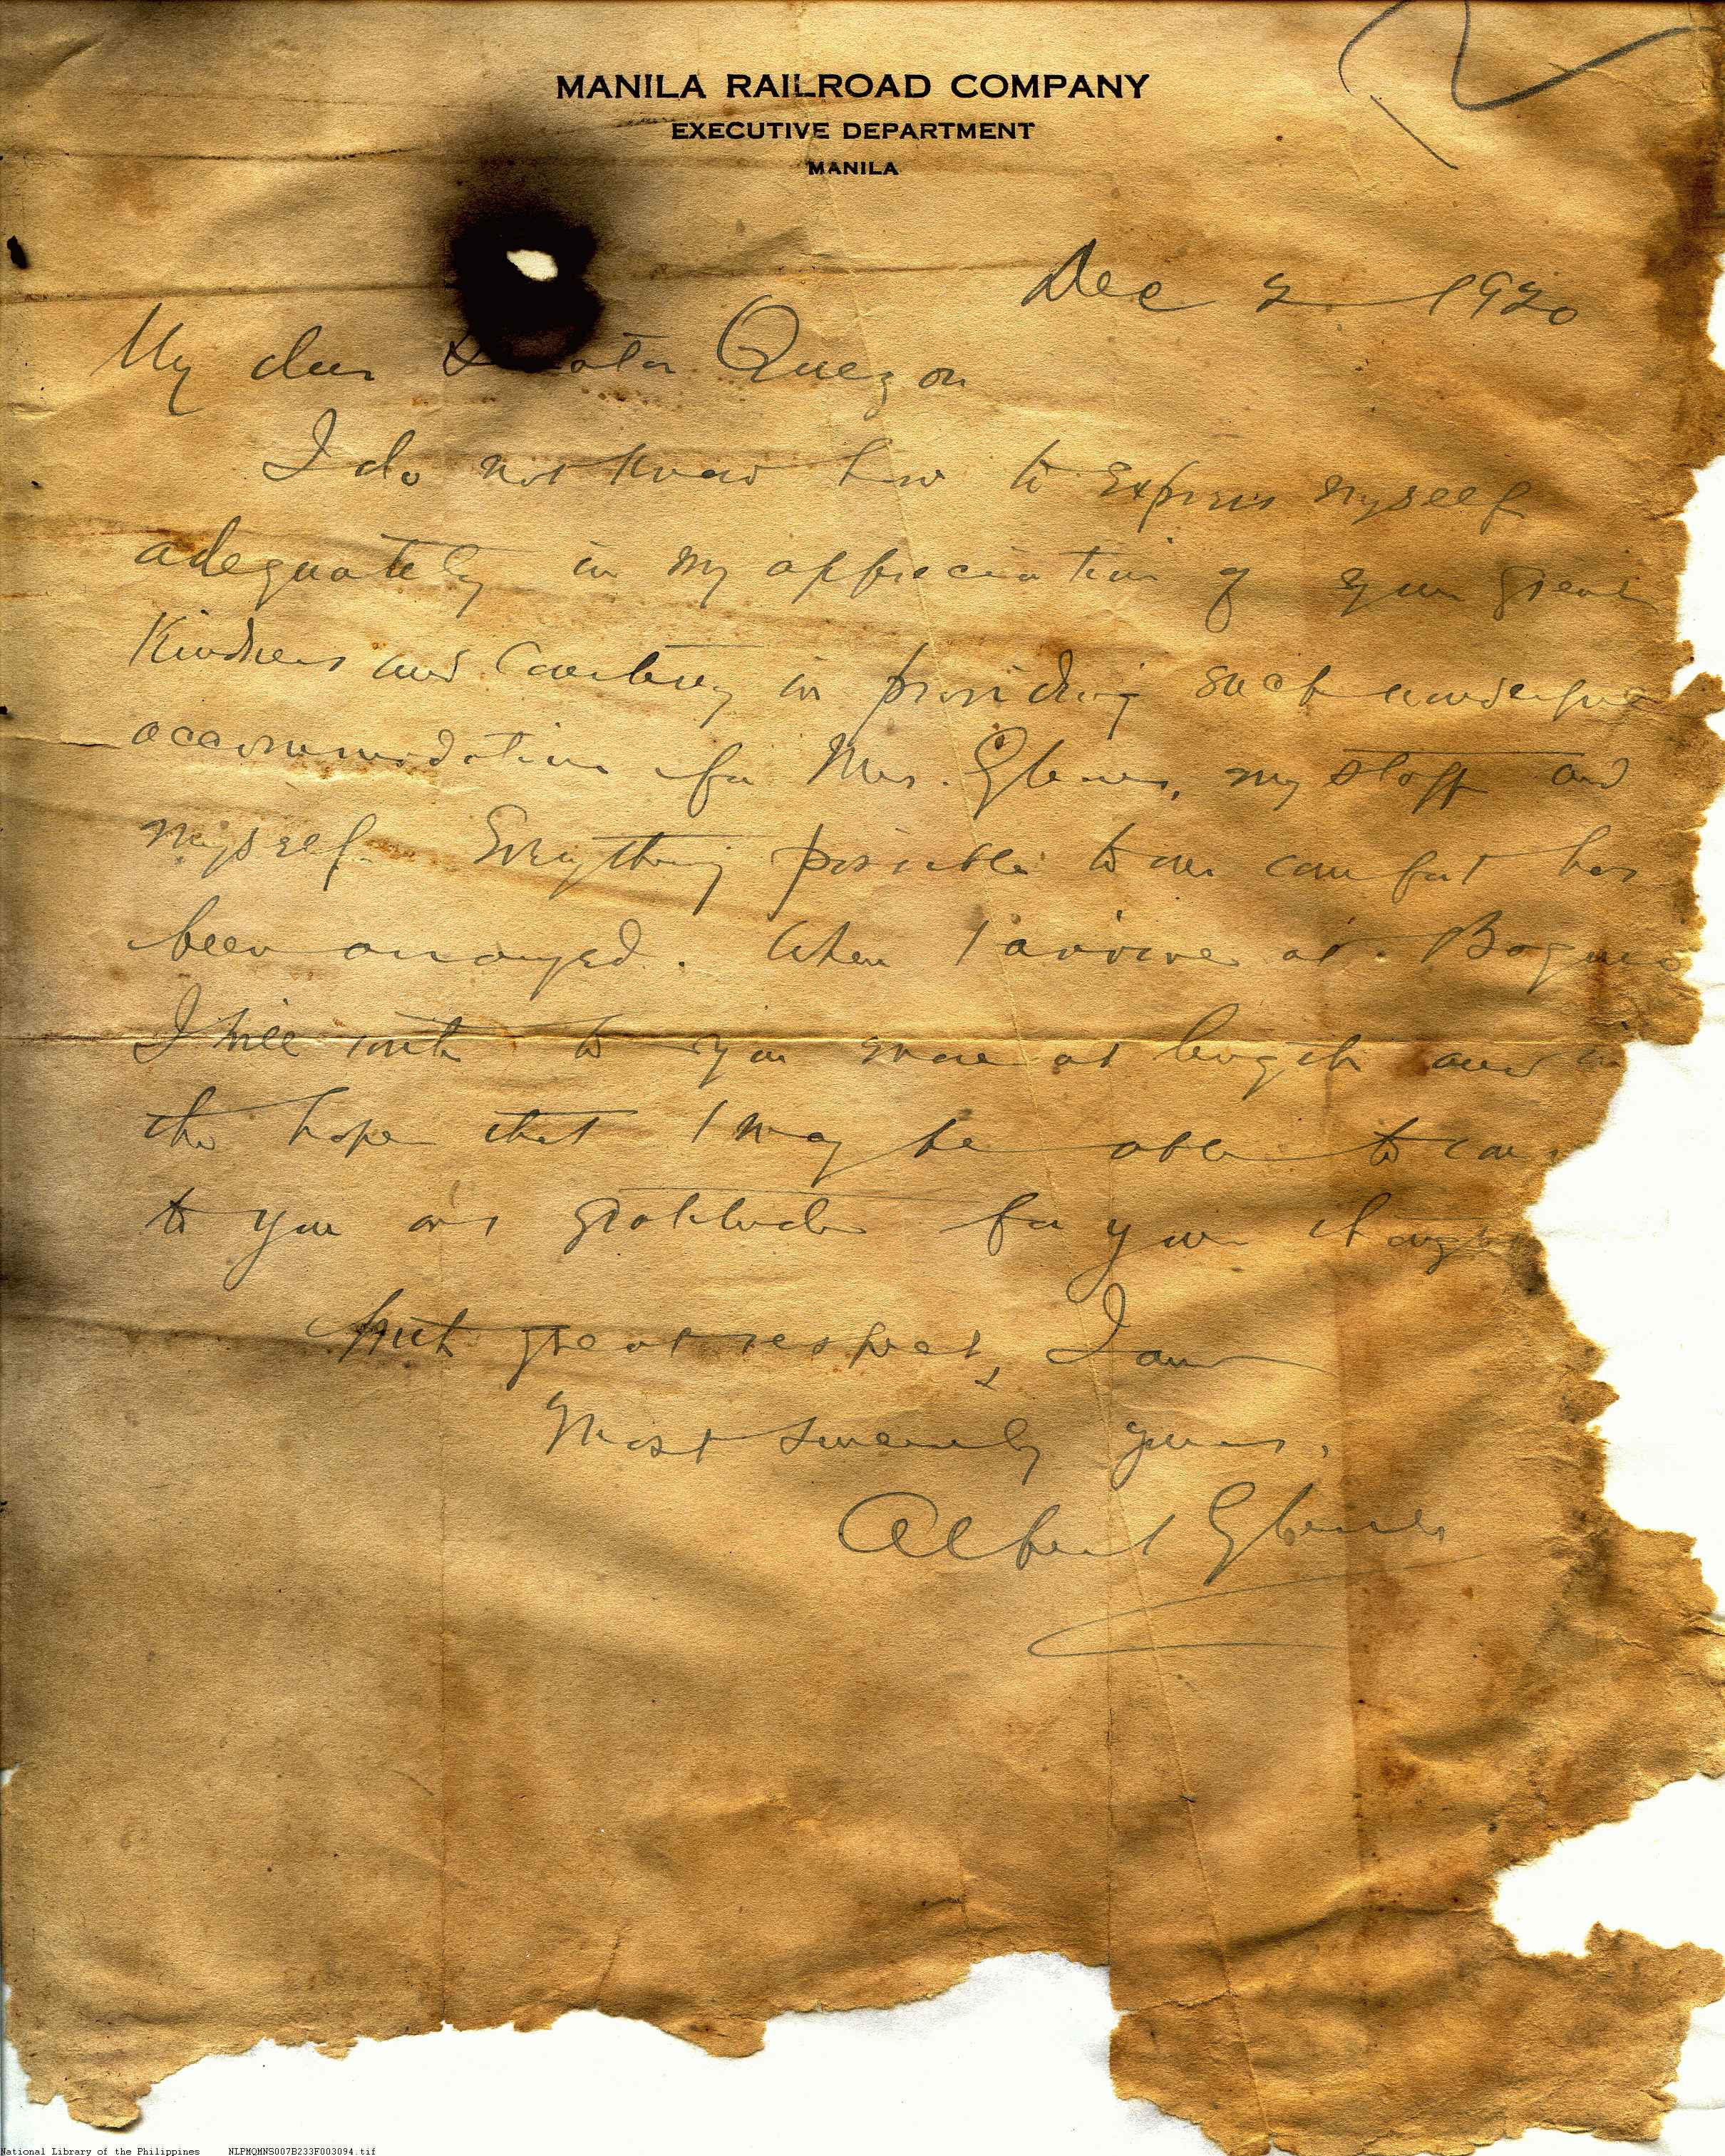 MANILA RAILROAD COMPANY
EXECUTIVE DEPARTMENT
MANILA
Dec 2 1920
My dear Quezon
I do not know how to express myself
adequately in my appreciation of your great
kindness and courtesy in providing such wonderful
accommodation for Mrs. Gleaves, my staff and
myself. Everything possible to our comfort has
been arranged. When I arrive at Baguio
I will write to you more at length and in
the hope that I may be able to
to you our gratitude for your
With great respect, I am
Most sincerely yours,
Albert Gleaves
National Library of the Philippines NLPMQMNS007B233F003094.tif